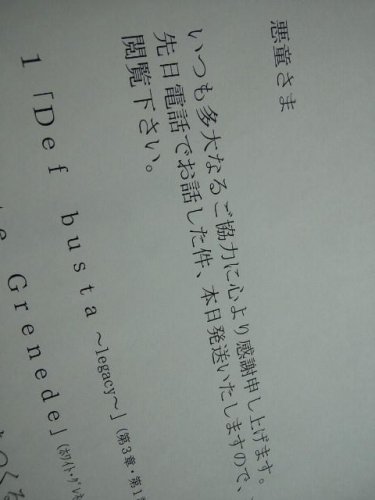 悪童さま
いつも多大なるご協力に心より感謝申し上げます。
先日電話でお話した件、本日発送いたしますので、
閲覧下さい。
1「Def busta ～legacy～」(第3章・第1
te Grenede」(ホワイト・グレネ